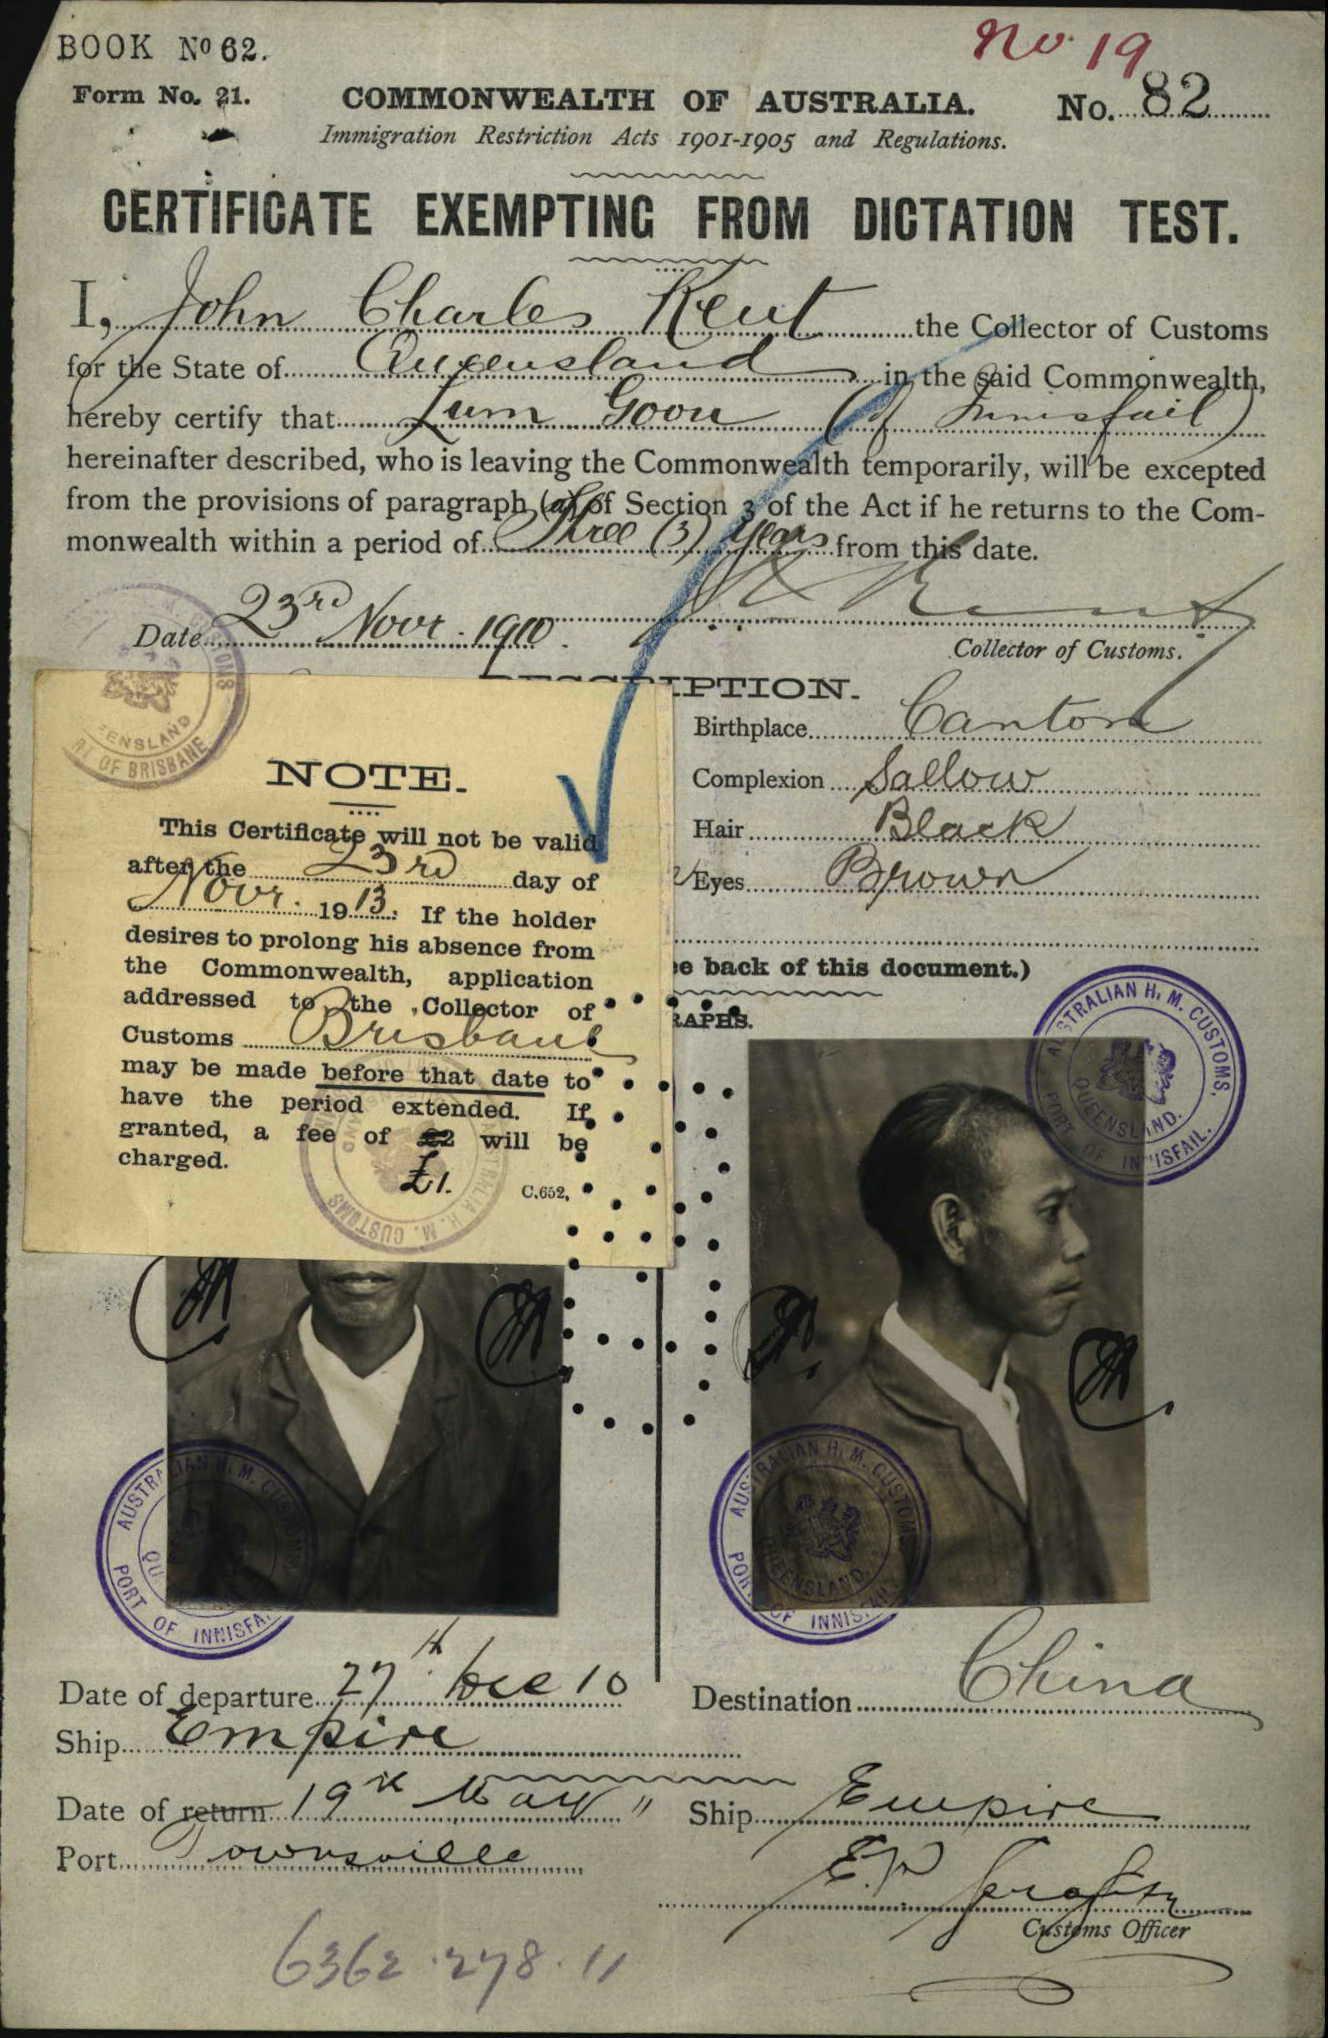 BOOK No 62.
No. 19
Form No. 21.
COMMONWEALTH OF AUSTRALIA.
No. 82
Immigration Restriction Acts 1901-1905 and Regulations.
CERTIFICATE EXEMPTING FROM DICTATION TEST.
I, John Charles Kent the Collector of Customs
for the State of Queensland in the said Commonwealth,
hereby certify that Lum Goon (of Innisfail)
hereinafter described, who is leaving the Commonwealth temporarily, will be excepted
from the provisions of paragraph (a) of Section 3 of the Act if he returns to the Com-
monwealth within a period of Three (3) Years from this date.
Date 23rd Novr. 1910.
Collector of Customs.
QUEENSLAND
OF BRISBANE
RIPTION.
Birthplace Canton
Complexion Sallow
Hair Black
Eyes Brown
e back of this document.)
RAPHS.
NOTE.
This Certificate will not be valid
after the 23rd day of
Novr. 1913. If the holder
desires to prolong his absence from
the Commonwealth, application
addressed to the Collector of
Customs Brisbane
may be made before that date to
have the period extended. If
granted, a fee of £2 will be
charged.
£1.
C.652.
AUSTRALIA H. M. CUSTOMS
AUSTRALIAN H. M. CUSTOMS.
QUEENSLAND.
PORT OF INNISFAIL.
AUSTRALIAN H. M. CUSTOMS
PORT OF INNISFA
AUSTRALIAN H. M. CUSTOMS
QUEENSLAND.
PORT OF INNISFAIL
Date of departure 27th Dec 10
Destination China
Ship Empire
Date of return 19th May "
Ship Empire
Port Townsville
Customs Officer
6362.278.11